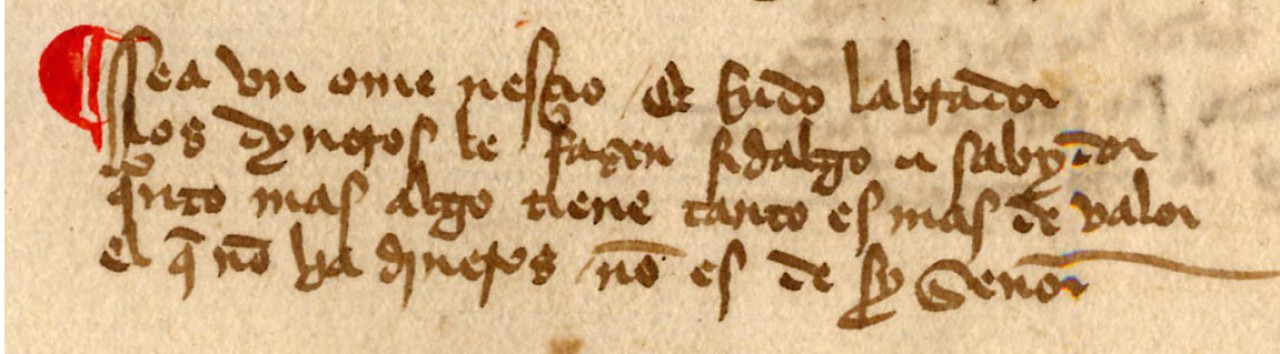 Sea vn ome nesçio Et Rudo labrador
los dyneros le fazen fidalgo E sabydor
quanto mas algo tiene tanto es mas de valor
el q̄ nō ha dineros nō es de sy Senor